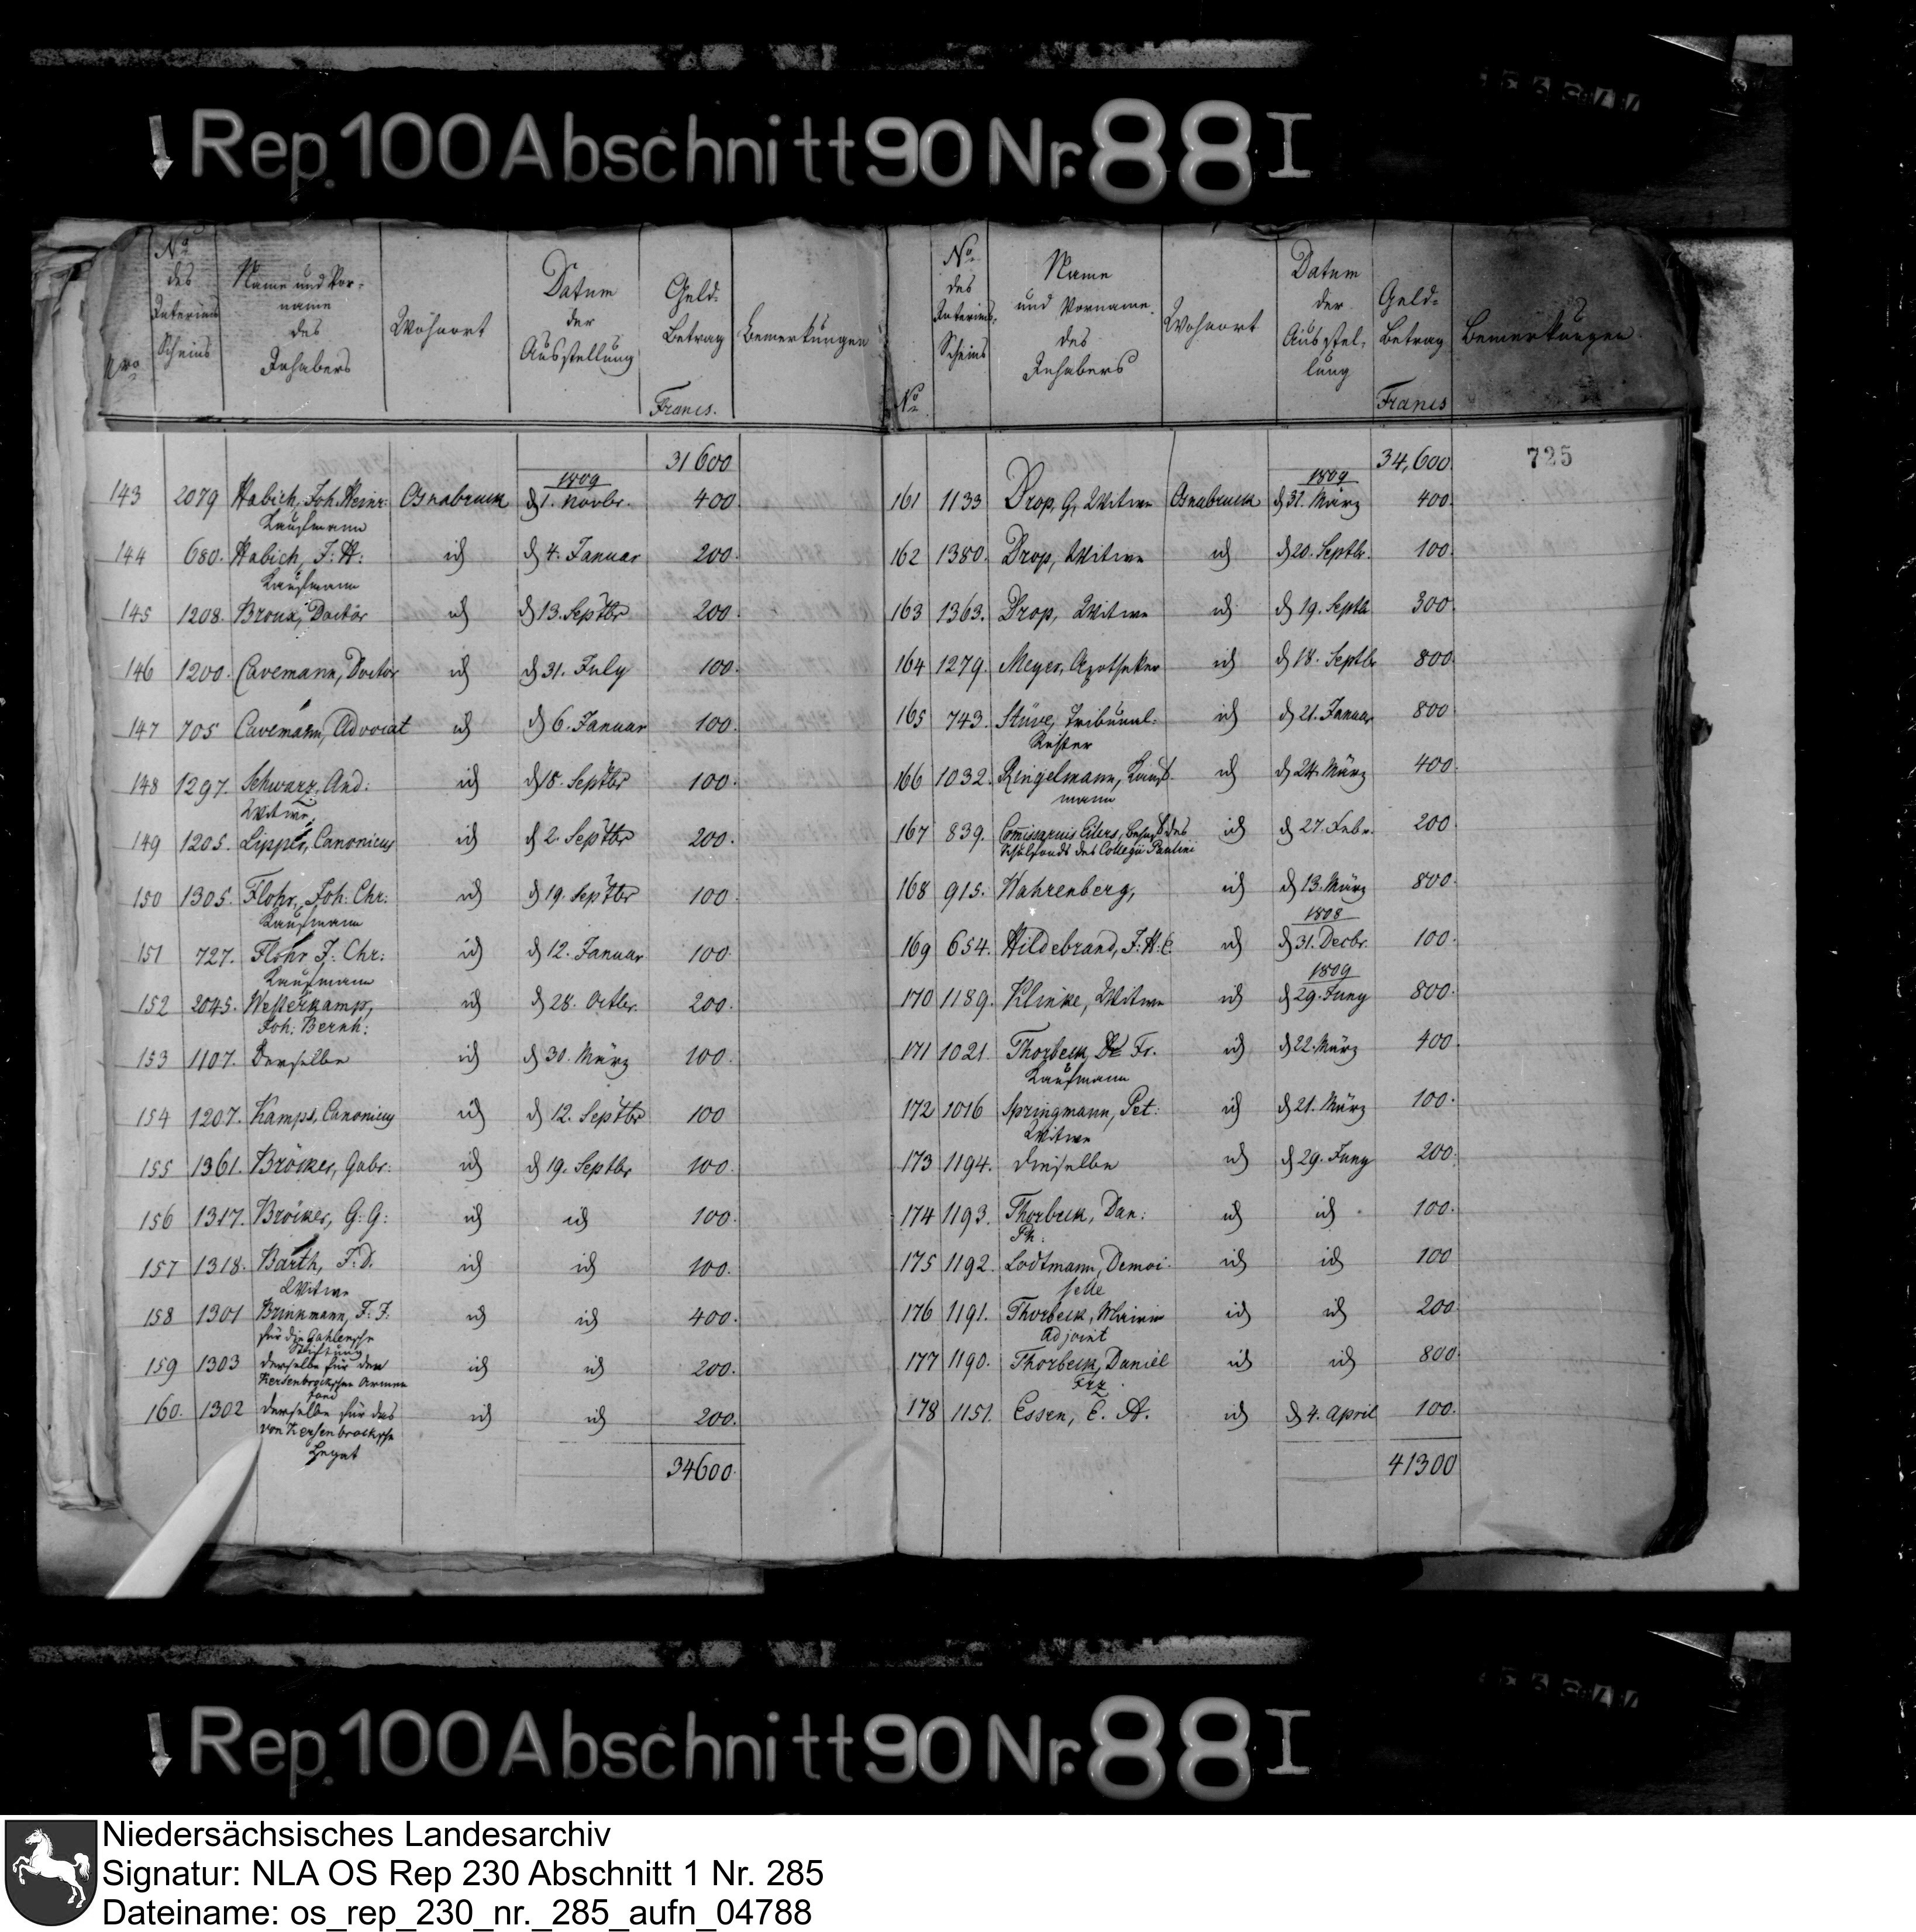 Rep. 100 Abschnitt 90 Nr. 88 I
No des Interims Scheins
Name und Vorname des Inhabers
Wohnort
Datum der Ausstellung
Geld-Betrag
Francs.
Bemerkungen
Nro
31600
1809
143 2079 Habich, Joh. Heinr: Osnabruck d 1. Novbr. 400.
Kaufmann
144 680. Habich, J: H: id d 4. Januar 200.
Kaufmann
145 1208. Broux, Doctor id d 13. Septbr 200.
146 1200. Cavemann, Doctor id d 31. July 100.
147 705 Cavemann, Advocat id d 6. Januar 100.
148 1297. Schwarz, And: id d 18. Septbr 100.
Witwe
149 1205. Lipper, Canonicus id d 2. Septbr 200.
150 1305. Flohr, Joh: Chr: id d 19. Septbr 100.
Kaufmann
151 727. Flohr J: Chr: id d 12. Januar 100.
Kaufmann
152 2045. Westerkamp, id d 28. Octbr. 200.
Joh: Bernh:
153 1107. Derselbe id d 30. März 100.
154 1207. Kamps, Canonicus id d 12. Septbr 100
155 1361. Bröcker, Gabr: id d 19. Septbr 100.
156 1317. Bröcker, G: G: id id 100.
157 1318. Barth, F: D. id id 100.
Witwe
158 1301 Brinkmann, F: F: id id 400.
für die Gahlensche
Stiftung
159 1303 derselbe für den id id 200.
Kersenbrockschen Armen
fond
160. 1302 derselbe für das id id 200.
von Kersenbrocksche
Legat
34600.
No des Interims, Scheins
Name und Vorname. des Inhabers
Wohnort
Datum der Ausstel, lung
Geld-Betrag
Francs
Bemerkungen
No
34,600
725
1809
161 1133 Drop, G, Witwe Osnabruck d 31. März 400.
162 1380. Drop, Witwe id d 20. Septbr. 100.
163 1363. Drop, Witwe id d 19. Septbr 300.
164 1279. Meyer, Apotheker id d 18. Septbr 800.
165 743. Stüve, Tribunal: id d 21. Januar 800
Richter
166 1032. Ringelmann, Kauf- id d 24. März 400.
mann
167 839. Commissarius Eilers, behuf des id d 27. Febr. 200.
Schulfonds des Collegii Paulini
168 915. Wahrenberg, id d 13. März 800.
1808
169 654. Hildebrand, J: H: C. id d 31. Decbr. 100.
1809
170 1189. Klinke, Witwe id d 29. Juny 800.
171 1021. Thorbeck, Fr. id d 22. März 400.
Kaufmann
172 1016 Springmann, Pet: id d 21. März 100.
Witwe
173 1194. dieselbe id d 29. Juny 200.
174 1193. Thorbeck, Dan: id id 100.
Ph:
175 1192. Lodtmann, Demoi- id id 100
selle
176 1191. Thorbeck, Mairie id id 200
Adjoint
177 1190. Thorbeck, Daniel id id 800.
Frz.
178 1151. Essen, C. A. id d 4. April 100.
41300
Rep. 100 Abschnitt 90 Nr. 88 I
Niedersächsisches Landesarchiv
Signatur: NLA OS Rep 230 Abschnitt 1 Nr. 285
Dateiname: os_rep_230_nr._285_aufn_04788